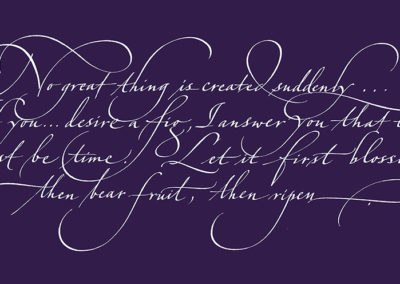 No great thing is created suddenly...
you... desire a fig, I answer you that
be time! Let it first
then bear fruit, then ripen